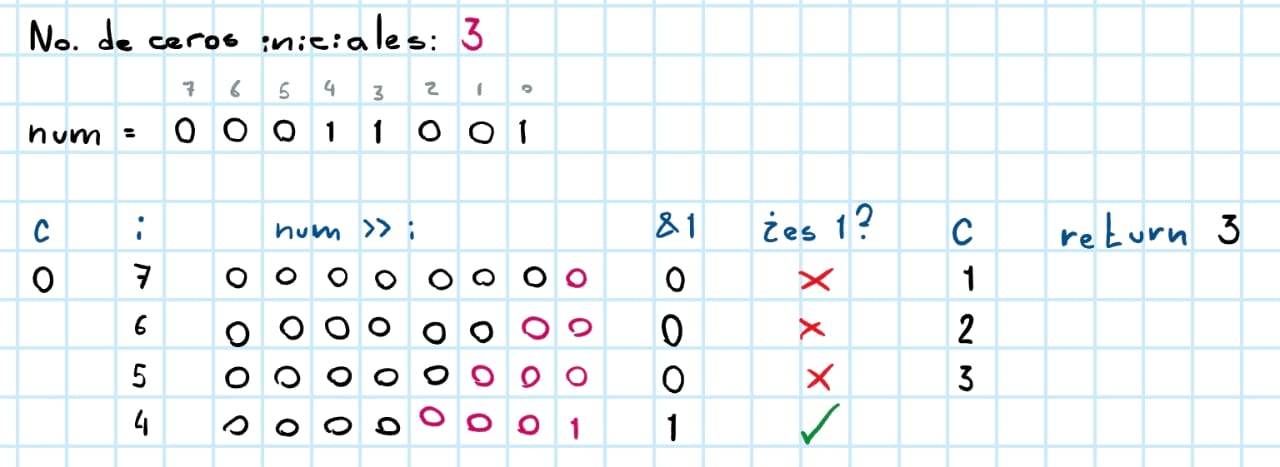 No. de ceros iniciales: 3
7 6 5 4 3 2 1 0
num = 0 0 0 1 1 0 0 1
c i num >> i &1 ¿es 1? c return 3
0 7 0 0 0 0 0 0 0 0 0 ✗ 1
6 0 0 0 0 0 0 0 0 0 ✗ 2
5 0 0 0 0 0 0 0 0 0 ✗ 3
4 0 0 0 0 0 0 0 1 1 ✓